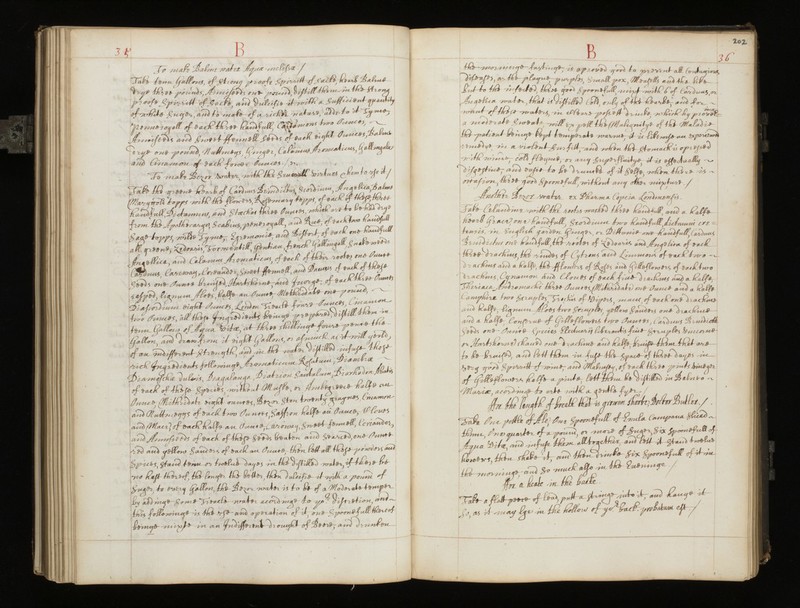 35 B
To make Balme water Aqua melissa /
Take tenn Gallons, of strong proofe Spirritt of Sacke, greene Balme
drye three pounds, Annisseeds one pound, distill them in the strong
proofe Spirritt of Sacke, and dulcifie it with a sufficient quantity
of white Suger, and to make of a richer nature, Adde to it Tyme,
pennyroyall of each three handfull, Cardomons two Ounces,
Annisseeds and sweet ffennell seeds of each eight Ounces, Balme
drye one pound, Nuttmegs, Ginger, Calamus Aromaticus, Gallingale
and Cinnamon of each foure Ounces
To make Bezor water, with the vertues thereof /
Take the greene herbs of Cardus Benedictus, Scordium, Angelica, Balme
Margerom topps with the flowers, Rosemary topps, of each of these three
handfull, Dictamnus, and Starches three Ounces, which are to be had drye
from the Apothecaryes, and Rue, of each one handfull
Sage topps, wilde Tyme, and of each one handfull
all greene, Zedoaria, Tormentill, Gentian, french Gallingall,
Angellica, and Calamus Aromaticus, of each of these rootes one Ounce
Cardus, Carraway, Coriander, Sweet ffennell, and of each of these
Seeds one Ounce bruised, Hartshorne, and Ivorye, of each three Ounces
rasped, lignum Aloes halfe an Ounce, Methridate one pound,
Diascordium eight Ounces, London Treacle foure Ounces, Cinnamon
two Ounces, all these Ingredients being prepared distill them in
tenn Gallons of Aqua Vitæ, at three shillings foure pence the
Gallon, and draw from it eight Gallons, or as much as it will yeild,
of an indifferent strength, and in the water distilled infuse these
rich Ingredients following, Aromaticum Rosatum, Diambræ
Diamosche dulcis, Diagalanga
of each of these Species, without Muske, or Ambergreece halfe an
Ounce, Methridate eight ounces, Bezor Ston twenty graynes, Cinamon
and Nuttmeggs of each two Ounces, Saffron halfe an Ounce, Cloves
and Mace of each halfe an Ounce, Caraway, Sweet fennell, Coriander,
and Annisseeds of each of these Seeds beaten and Searced, one Ounce
red and yellow Sanders of each an Ounce, then lett all these powders and
Spices, stand tenn or twelve dayes in the distilled water, if there be
no hast thereof the longer the better, then dulcifie it with a pound of
Suger, to every Gallon, the Bezor water is to be of a Moderate temper
by adding some Treacle water according to yor discretion, and
this following is the use and operation of it, one Spoonefull thereof
being mixte in an Indifferent drought of Beere, and drunken
202
B 36
the morninge fastinge, is aproved good to prevent all Contagious
diseases, as the plague, purples, Small pox, Measells and the like
but to the infected, three good spoonefull, mixt with 6 of Cardus, or
Angelica water, that is distilled Cold, only, of the hearbs, and for
want of those waters, in
a moderate Sweat, will expell the Malignity of the Maladie
the patient being kept temperate warme, it is likewise an experienced
remedy in a violent Surfitt, and when the Stomack is opressed
with winde, cold flegme, or any Superfluitye, it is effectually
digestive, and safe to be drunke of it Selfe, when there is
occasion, three good Spoonefull, without any other mixture. /
Another Bezor water, ex Pharma Copeia Londinensis.
Take Celandine with the rootes washed three handfull, and a halfe
hearb Grace one handfull, Scordium two handfull, dictamni cre=
tensis, in English green Ginger, or Dittanie one handfull, Cardus
Benedictus one handfull, the rootes of Zedoary, and Angelica of each
three drachms, the rindes of Cytrons and Limmons of each two
drachms and a halfe, the flowers of Roses and Gilloflowers of each two
drachms, Cynamon and Cloves of each two drachms and a halfe,
Theriaca Andromache three Ounces, Methridate one Ounce and a halfe
Camphire two Scruples, Trochis of Vipers, mace, of each one drachme
and halfe, lignum Aloes two Scruples, yellow Sanders one drachme
and a halfe, Conserve of Gilloflowers two Ounces, Cardus Benedictus
Seeds one Ounce, Species liberantis five Scruples, Unicorne
or Hartshorne shaved one drachme and halfe, bruise them that are
to be bruised, and lett them in fuse the space of three dayes in
very good Spirritt of wine, and Malmsey, of each three pints, vinegar
of Gilloflowers halfe a pinte, lett them be distilled in Balneo
Mariæ, according to arte with a gentle fyer. /
For the length of breath that is growne Shorte, Doctor Butler. /
Take One pottle of Ale, One Spoonefull of Enula Campana sliced
thinne, One quarter of a pound, or more of Suger, Six Spoonefull of
Aqua Vitæ, and infuse them alltogether, and lett it stand twelve
howers, then shake it, and then drinke Six Spoonefull of it in
the morninge, and So much also in the Eveninge /
For a heate in the backe.
Take a flatt peece of lead, putt a stringe into it, and hange it
So, as it may lye in the hollow of yor back, probatum est. /